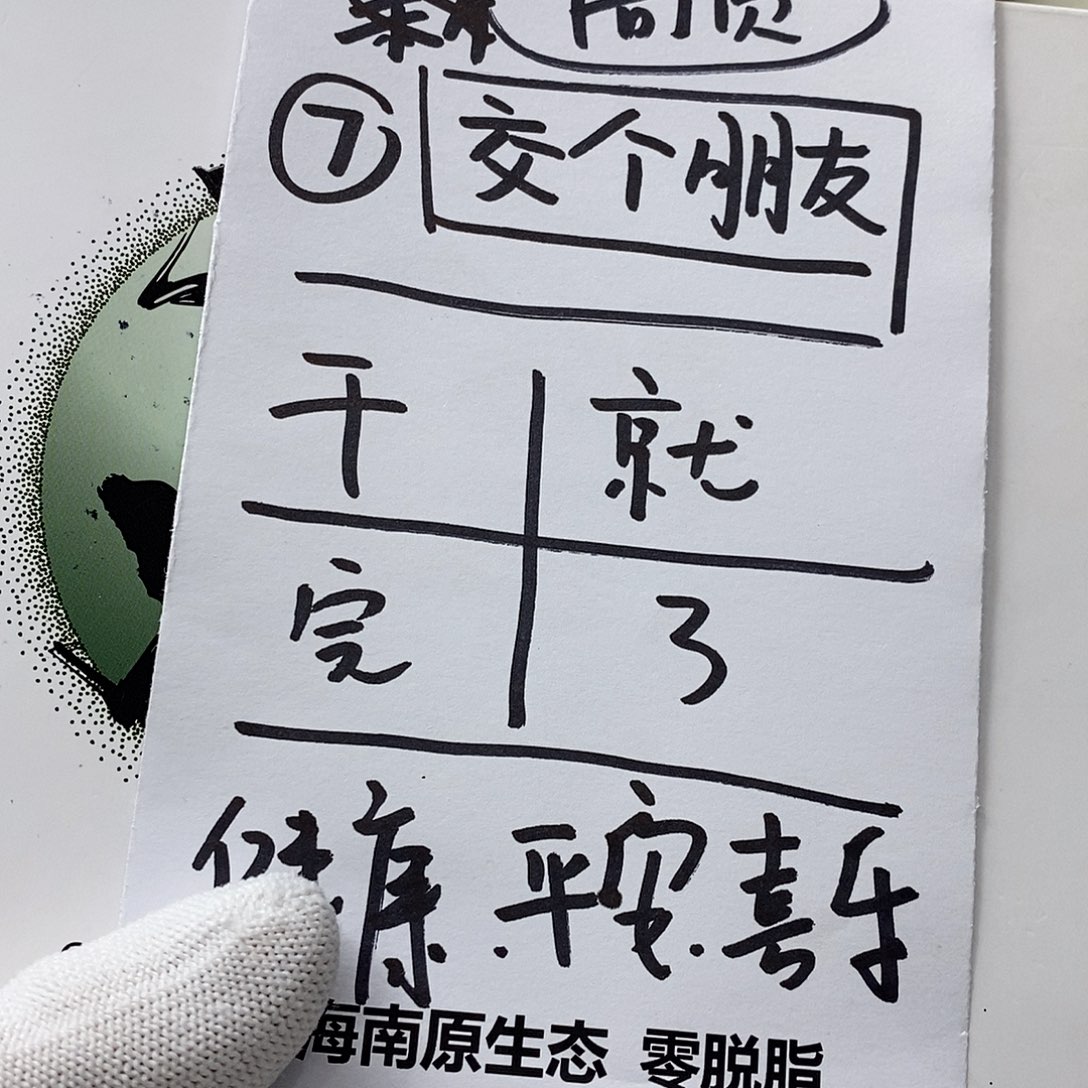 ⑦ 交个朋友
干 就
完 了
健康.平安.喜乐
海南原生态 零脱脂